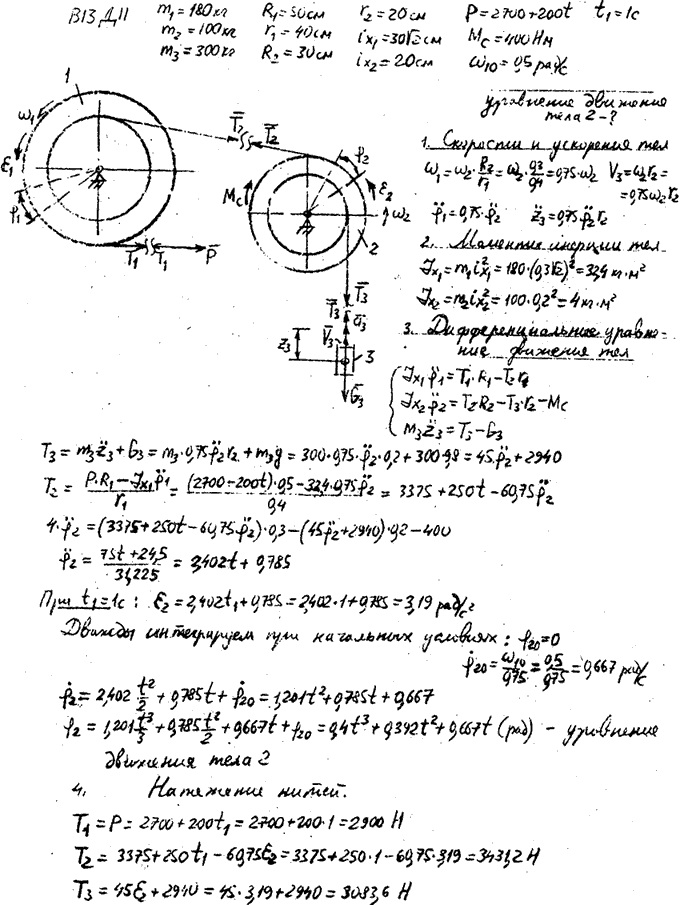 В13 Д11 m₁=180кг R₁=50см r₂=20см P=2700+200t t₁=1с
m₂=100кг r₁=40см iх₁=30√2см Mc=400Нм
m₃=300кг R₂=30см iх₂=20см ω₁₀=0,5 рад/с
уравнение движение
тела 2-?
1
ω₁
ε₁
φ₁
T̄₂ T̄₂
T̄₁ T̄₁ P̄
Mc
φ₂
ε₂
ω₂
2
T̄₃
T̄₃
ā₃
V̄₃
z₃
3
Ḡ₃
1. Скорости и ускорения тел
ω₁=ω₂·R₂/r₁=ω₂·0,3/0,4=0,75·ω₂ V₃=ω₂r₂=
=0,75ω₂r₂
φ̈₁=0,75·φ̈₂ z̈₃=0,75φ̈₂r₂
2. Моменты инерции тел
Jх₁=m₁iх₁²=180·(0,3√2)²=32,4 кг·м²
Jх₂=m₂iх₂²=100·0,2²=4кг·м²
3. Дифференциальное уравне-
ние движения тел
Jх₁φ̈₁=T₁·R₁-T₂r₁
Jх₂φ̈₂=T₂R₂-T₃·r₂-Mc
m₃z̈₃=T₃-G₃
T₃=m₃z̈₃+G₃=m₃·0,75φ̈₂r₂+m₃g=300·0,75·φ̈₂·0,2+300·9,8=45φ̈₂+2940
T₂=(P·R₁-Jх₁φ̈₁)/r₁=((2700-200t)·0,5-32,4·0,75φ̈₂)/0,4=3375+250t-60,75φ̈₂
4·φ̈₂=(3375+250t-60,75φ̈₂)·0,3-(45φ̈₂+2940)·0,2-400
φ̈₂=(75t+24,5)/31,225=2,402t+0,785
При t₁=1с: ε₂=2,402t₁+0,785=2,402·1+0,785=3,19 рад/с²
Дважды интегрируем при начальных условиях: φ₂₀=0
φ̇₂₀=ω₁₀/0,75=0,5/0,75=0,667 рад/с
φ̇₂=2,402 t²/2+0,785t+φ̇₂₀=1,201t²+0,785t+0,667
φ₂=1,201t³/3+0,785t²/2+0,667t+φ₂₀=0,4t³+0,392t²+0,667t (рад) - уравнение
движения тела 2
4. Натяжение нитей.
T₁=P=2700+200t₁=2700+200·1=2900 Н
T₂=3375+250t₁-60,75ε₂=3375+250·1-60,75·3,19=3431,2 Н
T₃=45ε₂+2940=45·3,19+2940=3083,6 Н